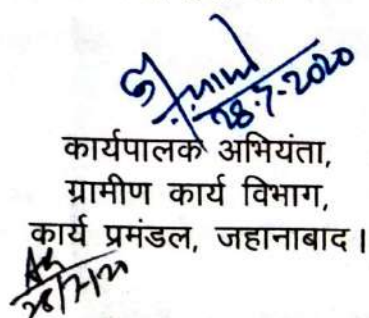 28.7.2020
कार्यपालक अभियंता,
ग्रामीण कार्य विभाग,
कार्य प्रमंडल, जहानाबाद।
28/7/20